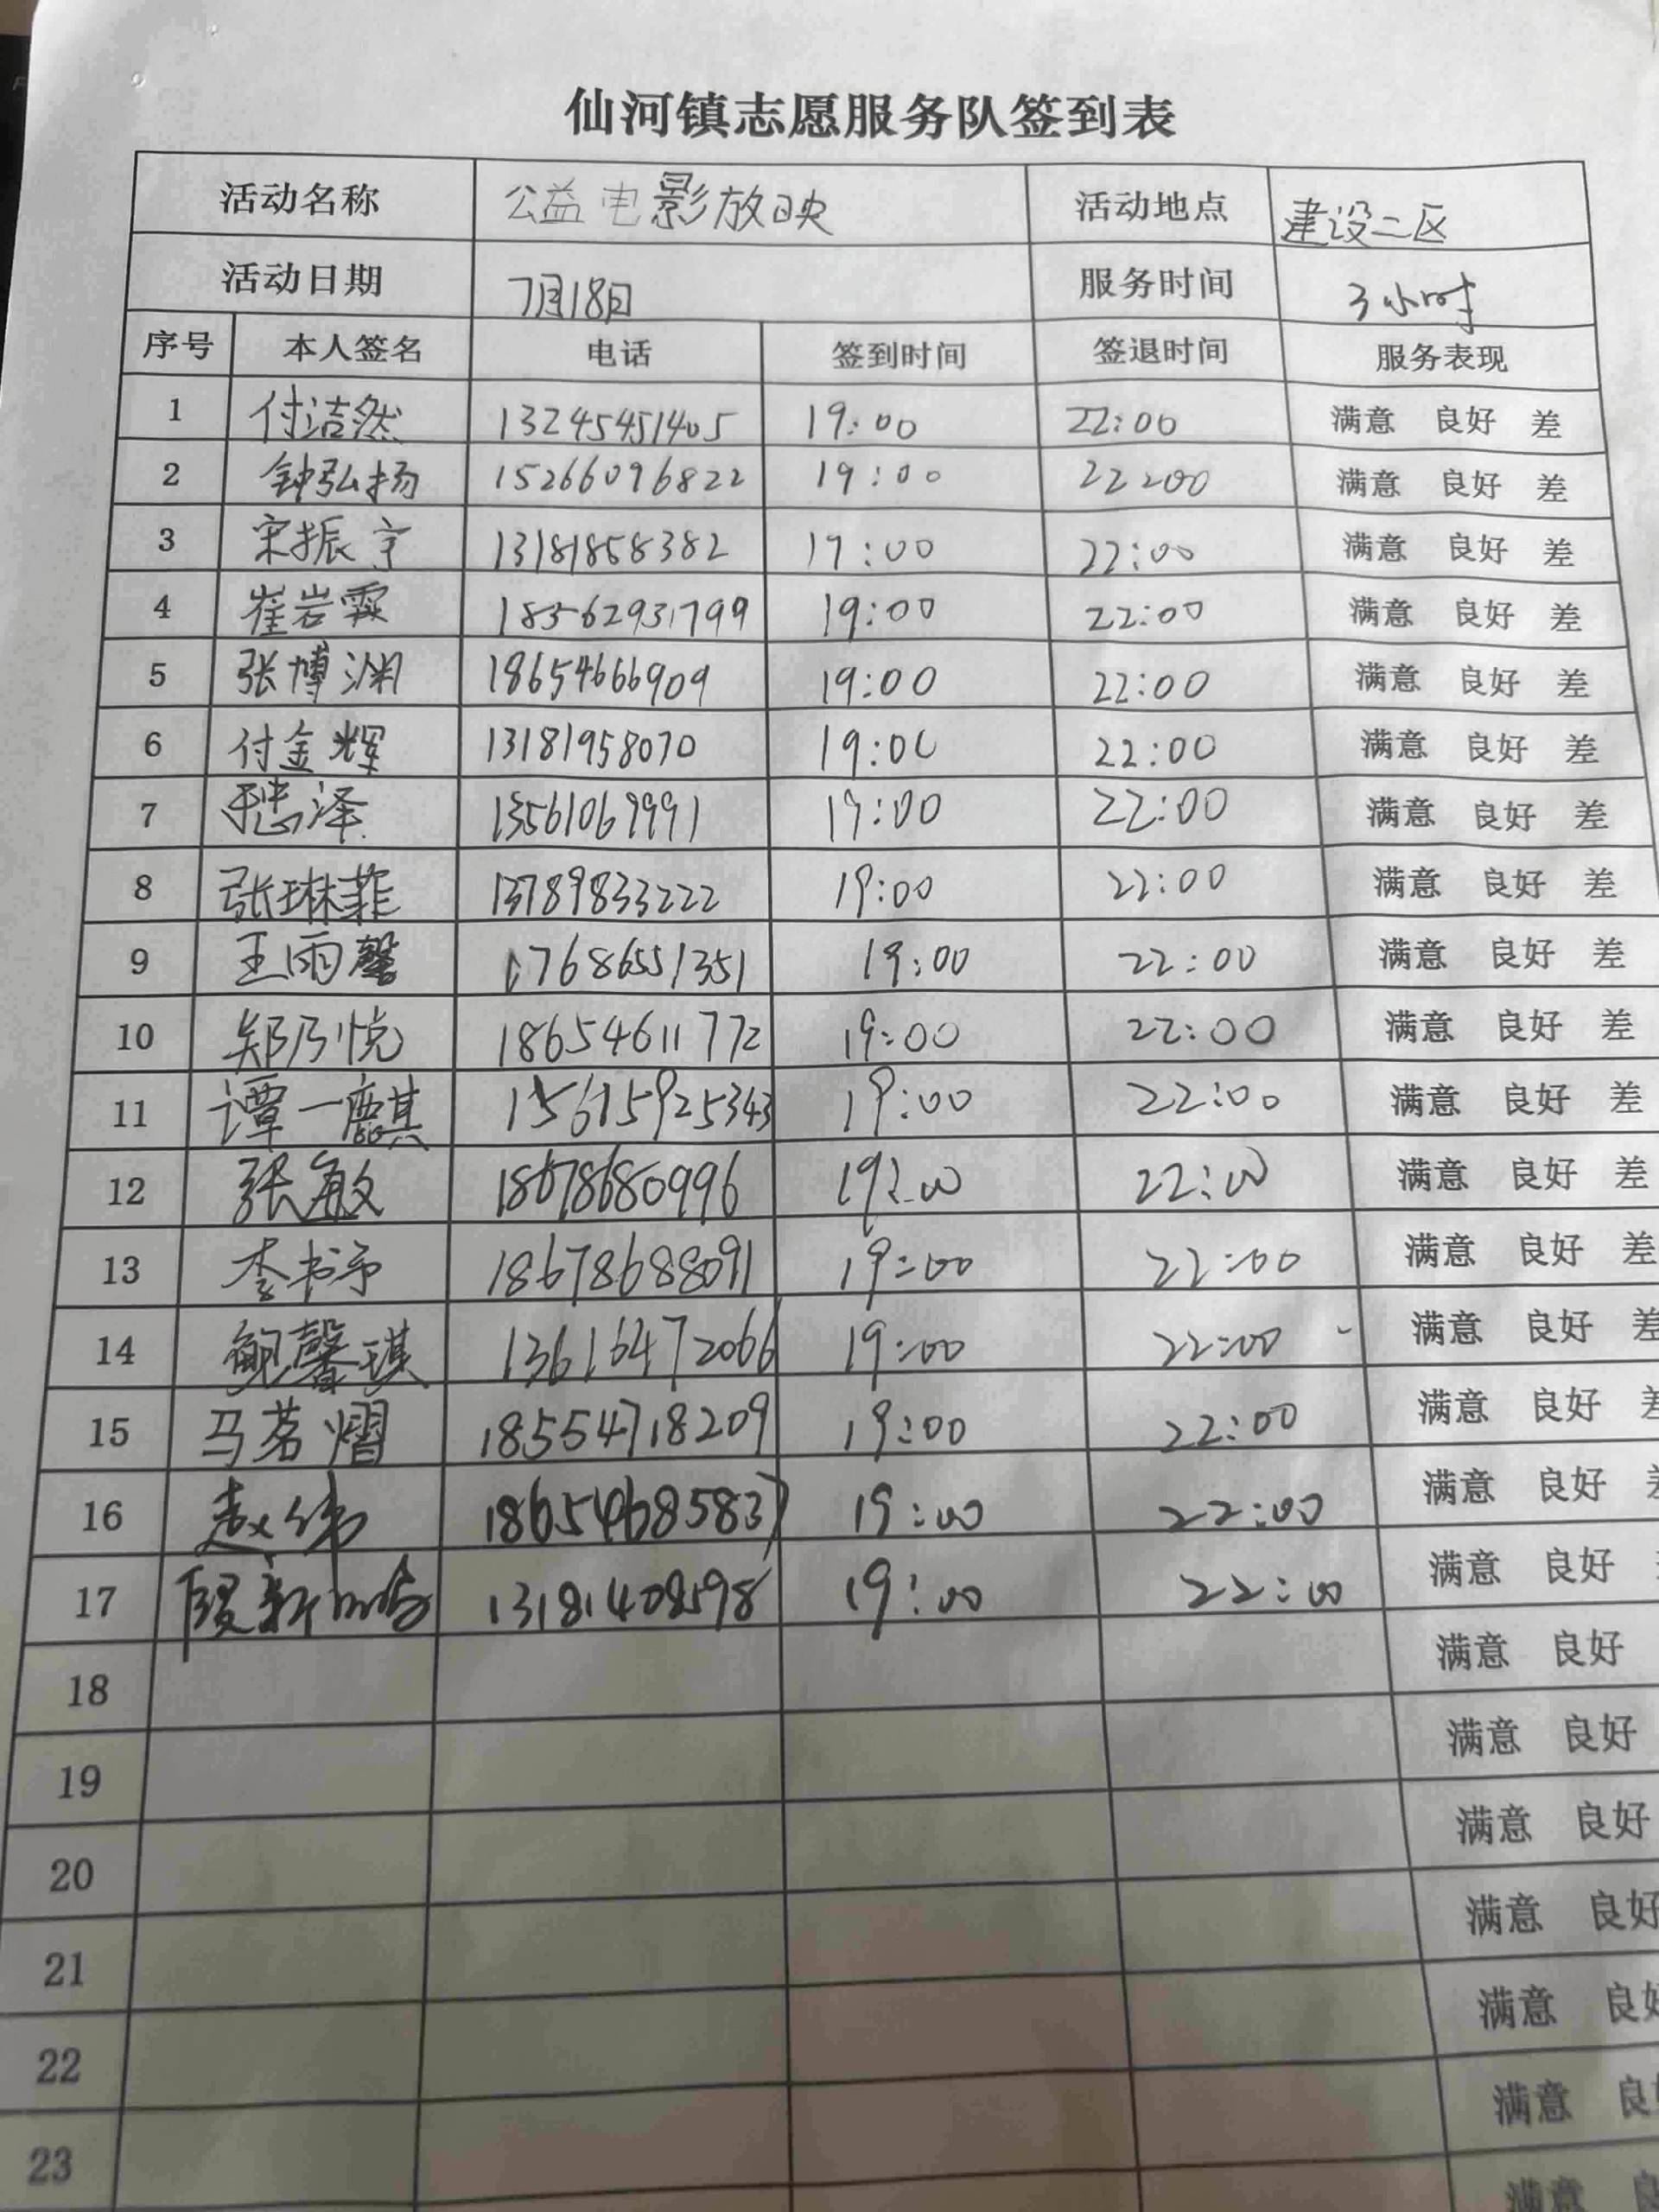 仙河镇志愿服务队签到表
活动名称 公益电影放映 活动地点 建设二区
活动日期 7月18日 服务时间 3小时
序号 本人签名 电话 签到时间 签退时间 服务表现
1 付洁然 13245451405 19:00 22:00 满意 良好 差
2 钟弘扬 15266096822 19:00 22:00 满意 良好 差
3 宋振宇 13181858382 19:00 22:00 满意 良好 差
4 崔岩霖 18562931799 19:00 22:00 满意 良好 差
5 张博渊 18654666909 19:00 22:00 满意 良好 差
6 付金辉 13181958070 19:00 22:00 满意 良好 差
7 泽 13561069991 19:00 22:00 满意 良好 差
8 张琳菲 13789833222 19:00 22:00 满意 良好 差
9 王雨馨 17686551351 19:00 22:00 满意 良好 差
10 郑乃悦 18654611772 19:00 22:00 满意 良好 差
11 谭一麒 15615925343 19:00 22:00 满意 良好 差
12 张敏 18678680996 19:00 22:00 满意 良好 差
13 李书予 18678688091 19:00 22:00 满意 良好 差
14 鲍馨琪 13616472066 19:00 22:00 满意 良好 差
15 马茗熠 18554718209 19:00 22:00 满意 良好
16 赵伟 18654685837 19:00 22:00 满意 良好
17 13181408598 19:00 22:00 满意 良好
18 满意 良好
19 满意 良好
20 满意 良好
21 满意 良好
22 满意 良好
23 满意 良
满意